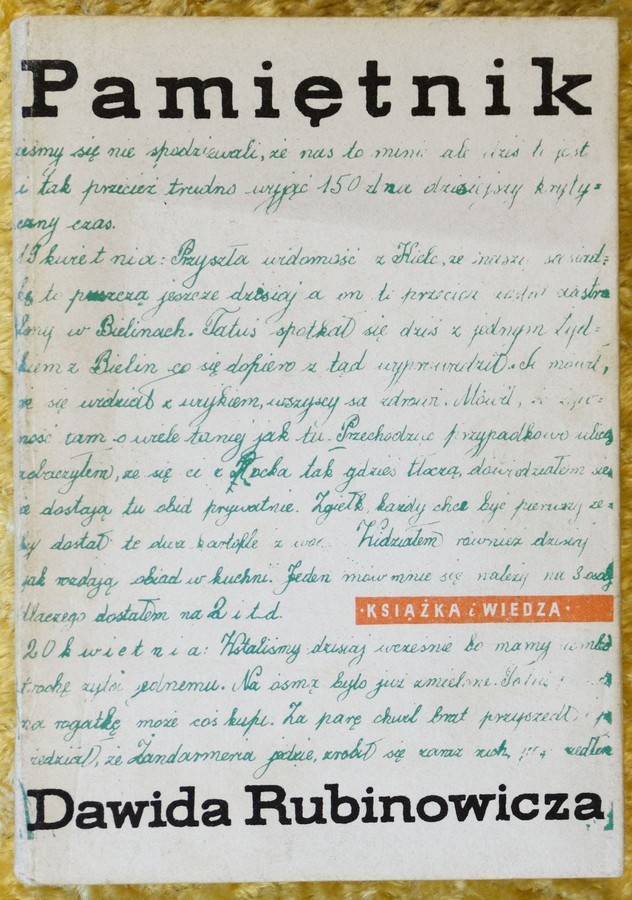 Pamiętnik
eśmy się nie spodziewali, że nas to minie ale dziś to jest
i tak przecież trudno wyjąć 150 zł na dzisiejszy kryty=
czny czas.
19 kwietnia: Przyszła wiadomość z Kielc, że
to puszczą jeszcze dzisiaj a on ti przecież
w Bielinach. Tatuś spotkał się dziś z jednym Żyd=
kiem z Bielin co się dopiero z tąd wyprowadził mówił,
że się widział z wujkiem, wszyscy są zdrowi. Mówił, że żyw=
ność tam o wiele taniej jak tu. Przechodząc przypadkowo ulicą
zobaczyłem, że się ci z Płocka tak gdzieś tłoczą, dowiedziałem się
że dostają tu obiad prywatnie. Zgiełk, każdy chce być pierwszy że=
by dostał te dwa kartofle z Widziałem również dzisiaj
jak rozdają obiad w kuchni. Jeden mówi mnie się należy na 3 osoby
dlaczego dostałem na 2 i t.d.
KSIĄŻKA i WIEDZA
20 kwietnia: Wstaliśmy dzisiaj wcześnie bo mamy
trochę żyta jednemu. Na ósmą było już zmielone. Tatuś
na rogatkę może coś kupi. Za parę chwil brat przyszedł i
iedział, że Żandarmeria jedzie, zrobił się zaraz ruch,
Dawida Rubinowicza